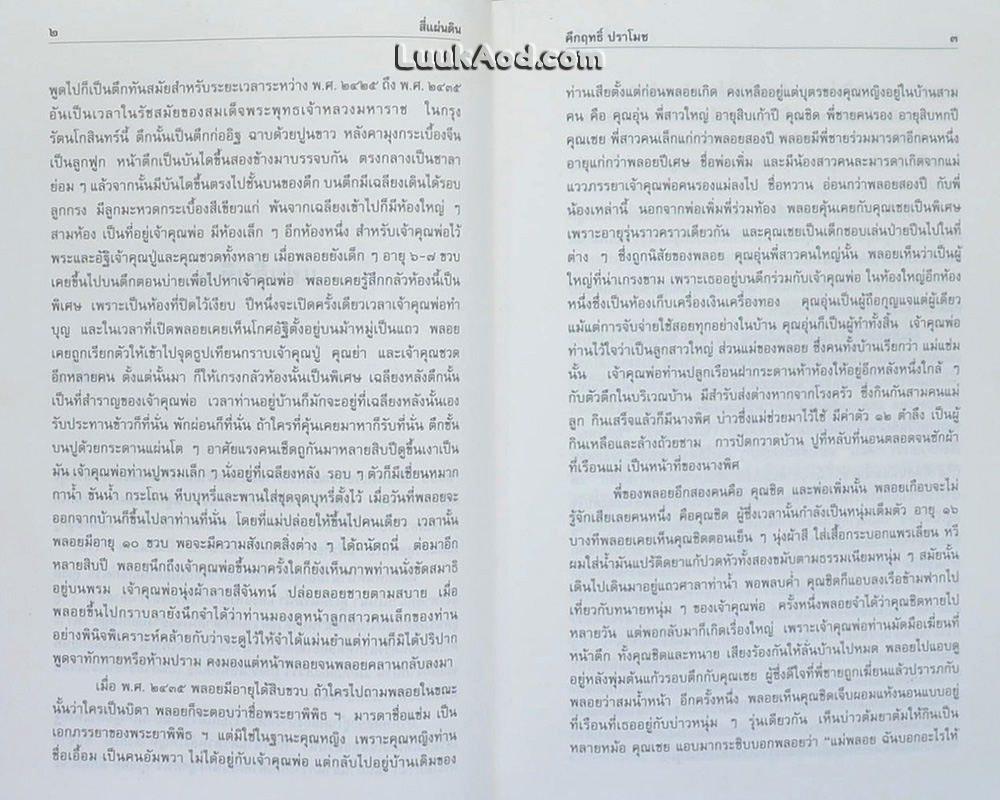 ๒
สี่แผ่นดิน
LuukAod.com
พูดไปก็เป็นตึกทันสมัยสำหรับระยะเวลาระหว่าง พ.ศ. ๒๔๒๕ ถึง พ.ศ. ๒๔๓๕
อันเป็นเวลาในรัชสมัยของสมเด็จพระพุทธเจ้าหลวงมหาราช ในกรุง
รัตนโกสินทร์นี้ ตึกนั้นเป็นตึกก่ออิฐ ฉาบด้วยปูนขาว หลังคามุงกระเบื้องจีน
เป็นลูกฟูก หน้าตึกเป็นบันไดขึ้นสองข้างมาบรรจบกัน ตรงกลางเป็นชาลา
ย่อม ๆ แล้วจากนั้นมีบันไดขึ้นตรงไปชั้นบนของตึก บนตึกมีเฉลียงเดินได้รอบ
ลูกกรง มีลูกมะหวดกระเบื้องสีเขียวแก่ พ้นจากเฉลียงเข้าไปก็มีห้องใหญ่ ๆ
สามห้อง เป็นที่อยู่เจ้าคุณพ่อ มีห้องเล็ก ๆ อีกห้องหนึ่ง สำหรับเจ้าคุณพ่อไว้
พระและอัฐิเจ้าคุณปู่และคุณชวดทั้งหลาย เมื่อพลอยยังเด็ก ๆ อายุ ๖-๗ ขวบ
เคยขึ้นไปบนตึกตอนบ่ายเพื่อไปหาเจ้าคุณพ่อ พลอยเคยรู้สึกกลัวห้องนี้เป็น
พิเศษ เพราะเป็นห้องที่ปิดไว้เงียบ ปีหนึ่งจะเปิดครั้งเดียวเวลาเจ้าคุณพ่อทำ
บุญ และในเวลาที่เปิดพลอยเคยเห็นโกศอัฐิตั้งอยู่บนม้าหมู่เป็นแถว พลอย
เคยถูกเรียกตัวให้เข้าไปจุดธูปเทียนกราบเจ้าคุณปู่ คุณย่า และเจ้าคุณชวด
อีกหลายคน ตั้งแต่นั้นมา ก็ให้เกรงกลัวห้องนั้นเป็นพิเศษ เฉลียงหลังตึกนั้น
เป็นที่สำราญของเจ้าคุณพ่อ เวลาท่านอยู่บ้านก็มักจะอยู่ที่เฉลียงหลังนั้นเอง
รับประทานข้าวก็ที่นั่น พักผ่อนก็ที่นั่น ถ้าใครที่คุ้นเคยมาหาก็รับที่นั่น ตึกชั้น
บนปูด้วยกระดานแผ่นโต ๆ อาศัยแรงคนเช็ดถูกันมาหลายสิบปีดูขึ้นเงาเป็น
มัน เจ้าคุณพ่อท่านปูพรมเล็ก ๆ นั่งอยู่ที่เฉลียงหลัง รอบ ๆ ตัวก็มีเชี่ยนหมาก
กาน้ำ ขันน้ำ กระโถน หีบบุหรี่และพานใส่ชุดจุดบุหรี่ตั้งไว้ เมื่อวันที่พลอยจะ
ออกจากบ้านก็ขึ้นไปลาท่านที่นั่น โดยที่แม่ปล่อยให้ขึ้นไปคนเดียว เวลานั้น
พลอยมีอายุ ๑๐ ขวบ พอจะมีความสังเกตสิ่งต่าง ๆ ได้ถนัดถนี่ ต่อมาอีก
หลายสิบปี พลอยนึกถึงเจ้าคุณพ่อขึ้นมาครั้งใดก็ยังเห็นภาพท่านนั่งขัดสมาธิ
อยู่บนพรม เจ้าคุณพ่อนุ่งผ้าลายสีจันทน์ ปล่อยลอยชายตามสบาย เมื่อ
พลอยขึ้นไปกราบลายังนึกจำได้ว่าท่านมองดูหน้าลูกสาวคนเล็กของท่าน
อย่างพินิจพิเคราะห์คล้ายกับว่าจะดูไว้ให้จำได้แม่นยำแต่ท่านก็มิได้ปริปาก
พูดจาทักทายหรือห้ามปราม คงมองแต่หน้าพลอยจนพลอยคลานกลับลงมา
เมื่อ พ.ศ. ๒๔๓๕ พลอยมีอายุได้สิบขวบ ถ้าใครไปถามพลอยในขณะ
นั้นว่าใครเป็นบิดา พลอยก็จะตอบว่าชื่อพระยาพิพิธ ฯ มารดาชื่อแช่ม เป็น
เอกภรรยาของพระยาพิพิธ ฯ แต่มิใช่ในฐานะคุณหญิง เพราะคุณหญิงท่าน
ชื่อเอื้อม เป็นคนอัมพวา ไม่ได้อยู่กับเจ้าคุณพ่อ แต่กลับไปอยู่บ้านเดิมของ
คึกฤทธิ์ ปราโมช
๓
ท่านเสียตั้งแต่ก่อนพลอยเกิด คงเหลืออยู่แต่บุตรของคุณหญิงอยู่ในบ้านสาม
คน คือ คุณอุ่น พี่สาวใหญ่ อายุสิบเก้าปี คุณชิด พี่ชายคนรอง อายุสิบหกปี
คุณเชย พี่สาวคนเล็กแก่กว่าพลอยสองปี พลอยมีพี่ชายร่วมมารดาอีกคนหนึ่ง
อายุแก่กว่าพลอยปีเศษ ชื่อพ่อเพิ่ม และมีน้องสาวคนละมารดาเกิดจากแม่
แววภรรยาเจ้าคุณพ่อคนรองแม่ลงไป ชื่อหวาน อ่อนกว่าพลอยสองปี กับพี่
น้องเหล่านี้ นอกจากพ่อเพิ่มพี่ร่วมท้อง พลอยคุ้นเคยกับคุณเชยเป็นพิเศษ
เพราะอายุรุ่นราวคราวเดียวกัน และคุณเชยเป็นเด็กชอบเล่นป่ายปีนไปในที่
ต่าง ๆ ซึ่งถูกนิสัยของพลอย คุณอุ่นพี่สาวคนใหญ่นั้น พลอยเห็นว่าเป็นผู้
ใหญ่ที่น่าเกรงขาม เพราะเธออยู่บนตึกร่วมกับเจ้าคุณพ่อ ในห้องใหญ่อีกห้อง
หนึ่งซึ่งเป็นห้องเก็บเครื่องเงินเครื่องทอง คุณอุ่นเป็นผู้ถือกุญแจแต่ผู้เดียว
แม้แต่การจับจ่ายใช้สอยทุกอย่างในบ้าน คุณอุ่นก็เป็นผู้ทำทั้งสิ้น เจ้าคุณพ่อ
ท่านไว้ใจว่าเป็นลูกสาวใหญ่ ส่วนแม่ของพลอย ซึ่งคนทั้งบ้านเรียกว่า แม่แช่ม
นั้น เจ้าคุณพ่อท่านปลูกเรือนฝากระดานห้าห้องให้อยู่อีกหลังหนึ่งใกล้ ๆ
กับตัวตึกในบริเวณบ้าน มีสำรับส่งต่างหากจากโรงครัว ซึ่งกินกันสามคนแม่
ลูก กินเสร็จแล้วก็มีนางพิศ บ่าวซึ่งแม่ช่วยมาไว้ใช้ มีค่าตัว ๑๒ ตำลึง เป็นผู้
กินเหลือและล้างถ้วยชาม การปัดกวาดบ้าน ปูที่หลับที่นอนตลอดจนซักผ้า
ที่เรือนแม่ เป็นหน้าที่ของนางพิศ
พี่ของพลอยอีกสองคนคือ คุณชิด และพ่อเพิ่มนั้น พลอยเกือบจะไม่
รู้จักเสียเลยคนหนึ่ง คือคุณชิด ผู้ซึ่งเวลานั้นกำลังเป็นหนุ่มเต็มตัว อายุ ๑๖
บางทีพลอยเคยเห็นคุณชิดตอนเย็น ๆ นุ่งผ้าสี ใส่เสื้อกระบอกแพรเลี่ยน หวี
ผมใส่น้ำมันแปร้ติดยาแก้ปวดหัวทั้งสองขมับตามธรรมเนียมหนุ่ม ๆ สมัยนั้น
เดินไปเดินมาอยู่แถวศาลาท่าน้ำ พอพลบค่ำ คุณชิดก็แอบลงเรือข้ามฟากไป
เที่ยวกับทนายหนุ่ม ๆ ของเจ้าคุณพ่อ ครั้งหนึ่งพลอยจำได้ว่าคุณชิดหายไป
หลายวัน แต่พอกลับมาก็เกิดเรื่องใหญ่ เพราะเจ้าคุณพ่อท่านมัดมือเฆี่ยนที่
หน้าตึก ทั้งคุณชิดและทนาย เสียงร้องกันให้ลั่นบ้านไปหมด พลอยไปแอบดู
อยู่หลังพุ่มต้นแก้วรอบตึกกับคุณเชย ผู้ซึ่งดีใจที่พี่ชายถูกเฆี่ยนแล้วปรารภกับ
พลอยว่าสมน้ำหน้า อีกครั้งหนึ่ง พลอยเห็นคุณชิดเจ็บผอมแห้งนอนแบบอยู่
ที่เรือนที่เธออยู่กับบ่าวหนุ่ม ๆ รุ่นเดียวกัน เห็นบ่าวต้มยาต้มให้กินเป็น
หลายหม้อ คุณเชย แอบมากระซิบบอกพลอยว่า “แม่พลอย ฉันบอกอะไรให้